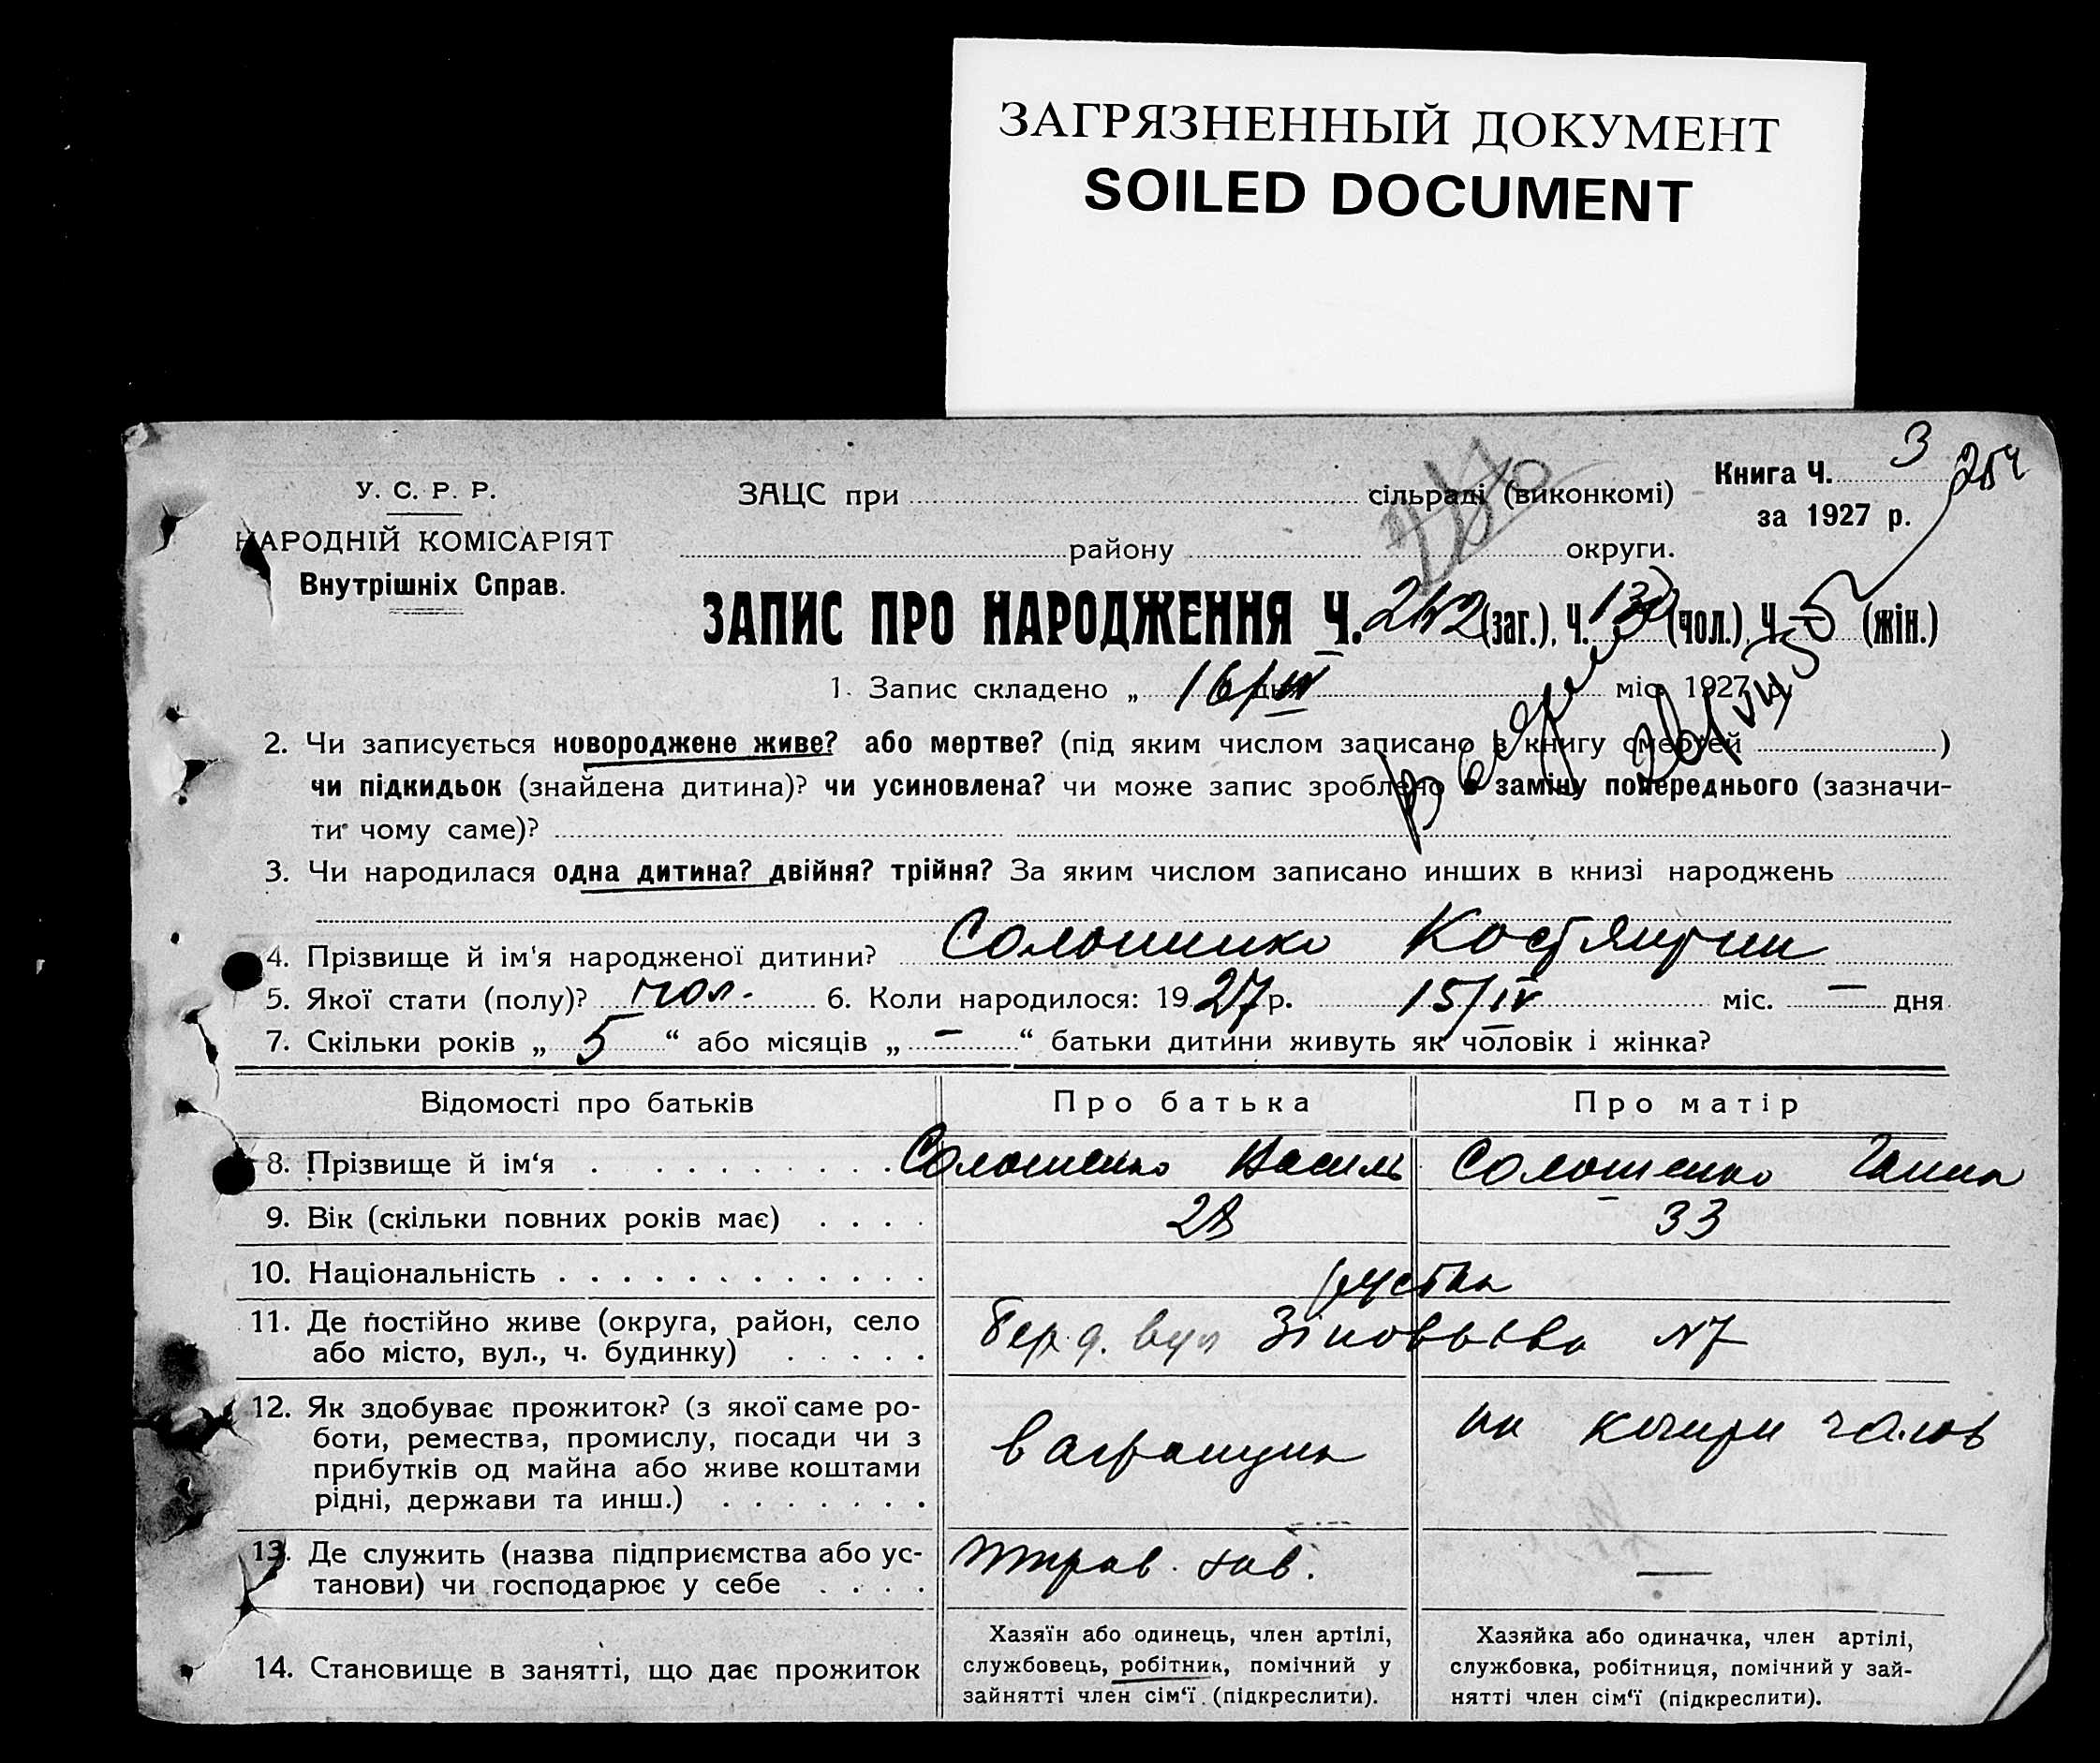 ЗАГРЯЗНЕННЫЙ ДОКУМЕНТ
SOILED DOCUMENT
У. С. Р. Р.
НАРОДНІЙ КОМІСАРІЯТ
Внутрішніх Справ.
ЗАЦС при сільраді (виконкомі)
району округи.
Книга Ч. 3
за 1927 р.
254
ЗАПИС ПРО НАРОДЖЕННЯ Ч. 252 (заг.), Ч. 13 (чол.), Ч. (жін.)
1. Запис складено „ 16/IV дня міс. 1927 р.
2. Чи записується новороджене живе? або мертве? (під яким числом записано в книгу смертей )
чи підкидьок (знайдена дитина)? чи усиновлена? чи може запис зроблено в заміну попереднього (зазначи-
ти чому саме)?
3. Чи народилася одна дитина? двійня? трійня? За яким числом записано инших в книзі народжень
4. Прізвище й ім‘я народженої дитини? Солошенко Костянтин
5. Якої стати (полу)? чол. 6. Коли народилося: 1927 р. 15/IV міс. — дня
7. Скільки років „ 5 “ або місяців „ — “ батьки дитини живуть як чоловік і жінка?
Відомості про батьків Про батька Про матір
8. Прізвище й ім‘я Солошенко Василь Солошенко Ганна
9. Вік (скільки повних років має) 28 33
10. Національність
11. Де постійно живе (округа, район, село
або місто, вул., ч. будинку) Берд. вул Зіновьєва №7
12. Як здобуває прожиток? (з якої саме ро-
боти, ремества, промислу, посади чи з
прибутків од майна або живе коштами
рідні, держави та инш.)
13. Де служить (назва підприємства або ус-
танови) чи господарює у себе зав. —
14. Становище в занятті, що дає прожиток
Хазяїн або одинець, член артілі,
службовець, робітник, помічний у
зайнятті член сім‘ї (підкреслити).
Хазяйка або одиначка, член артілі,
службовка, робітниця, помічний у зай-
нятті член сім‘ї (підкреслити).